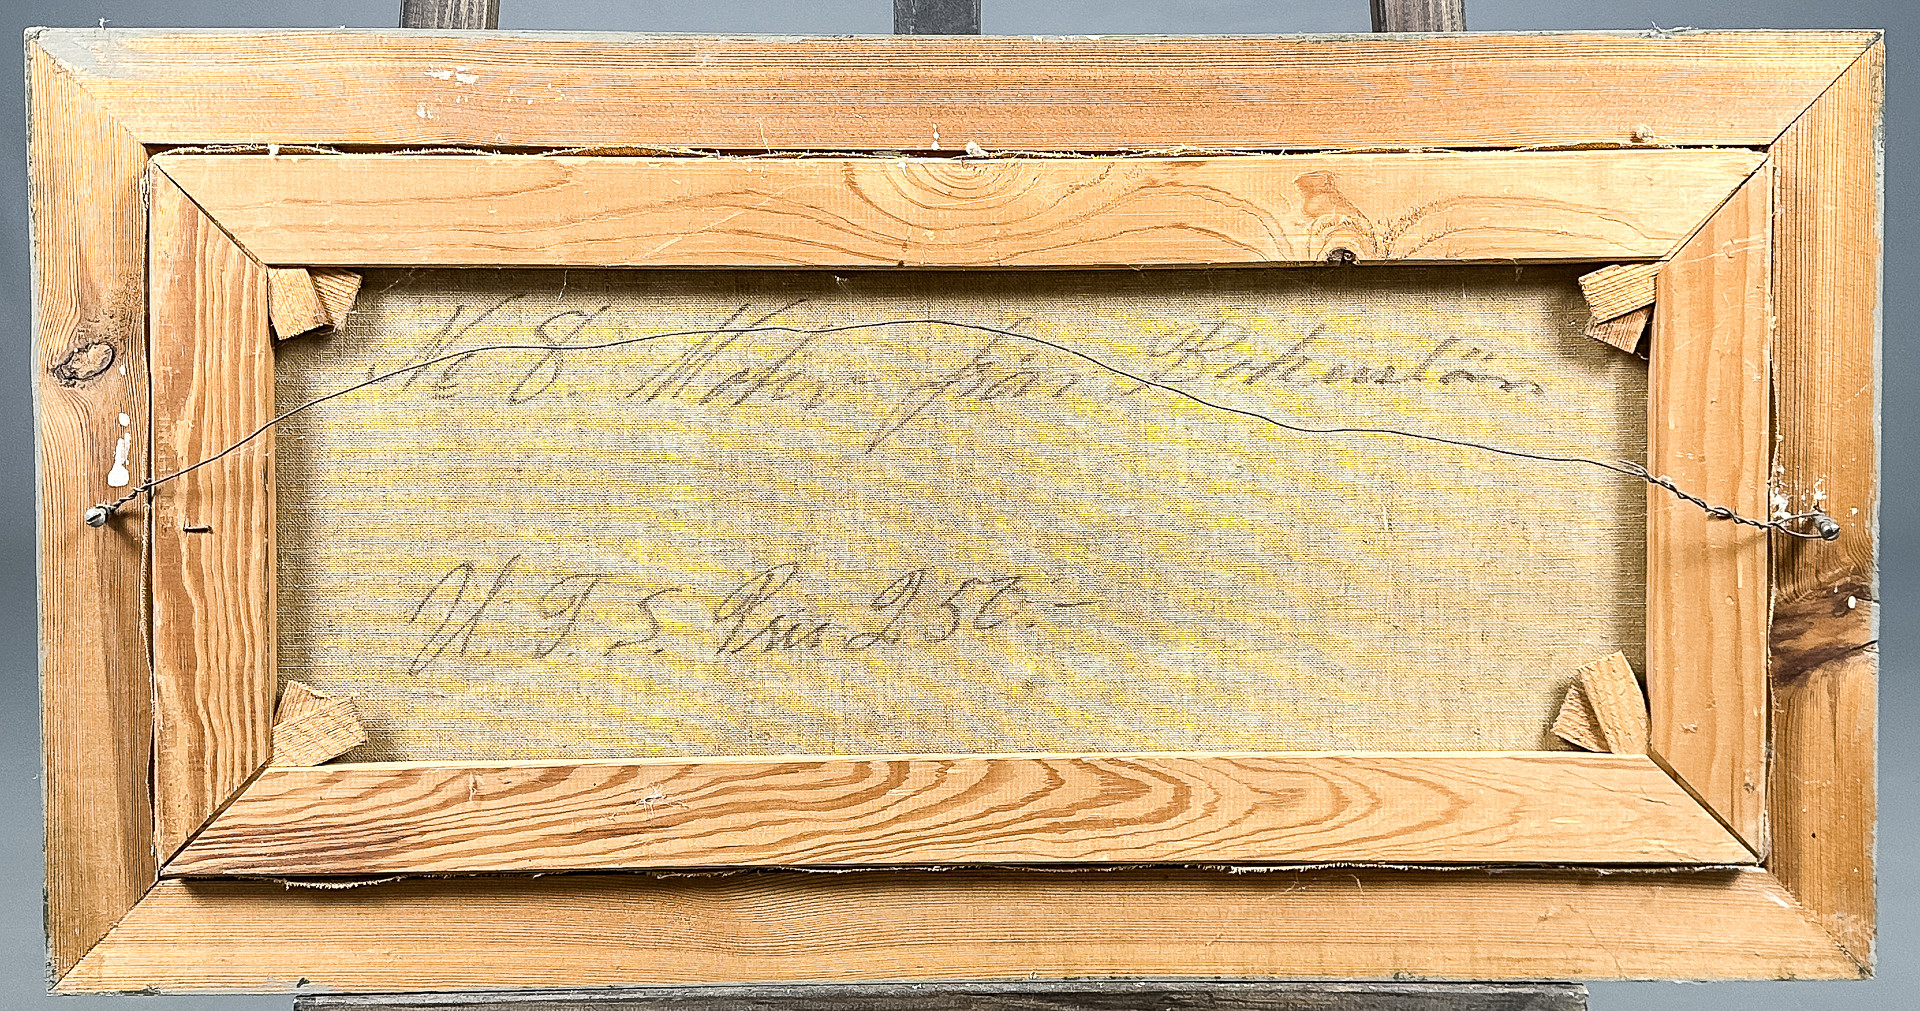 No 8. Motiv från Bohuslän
H. T. S. Pris 250:-